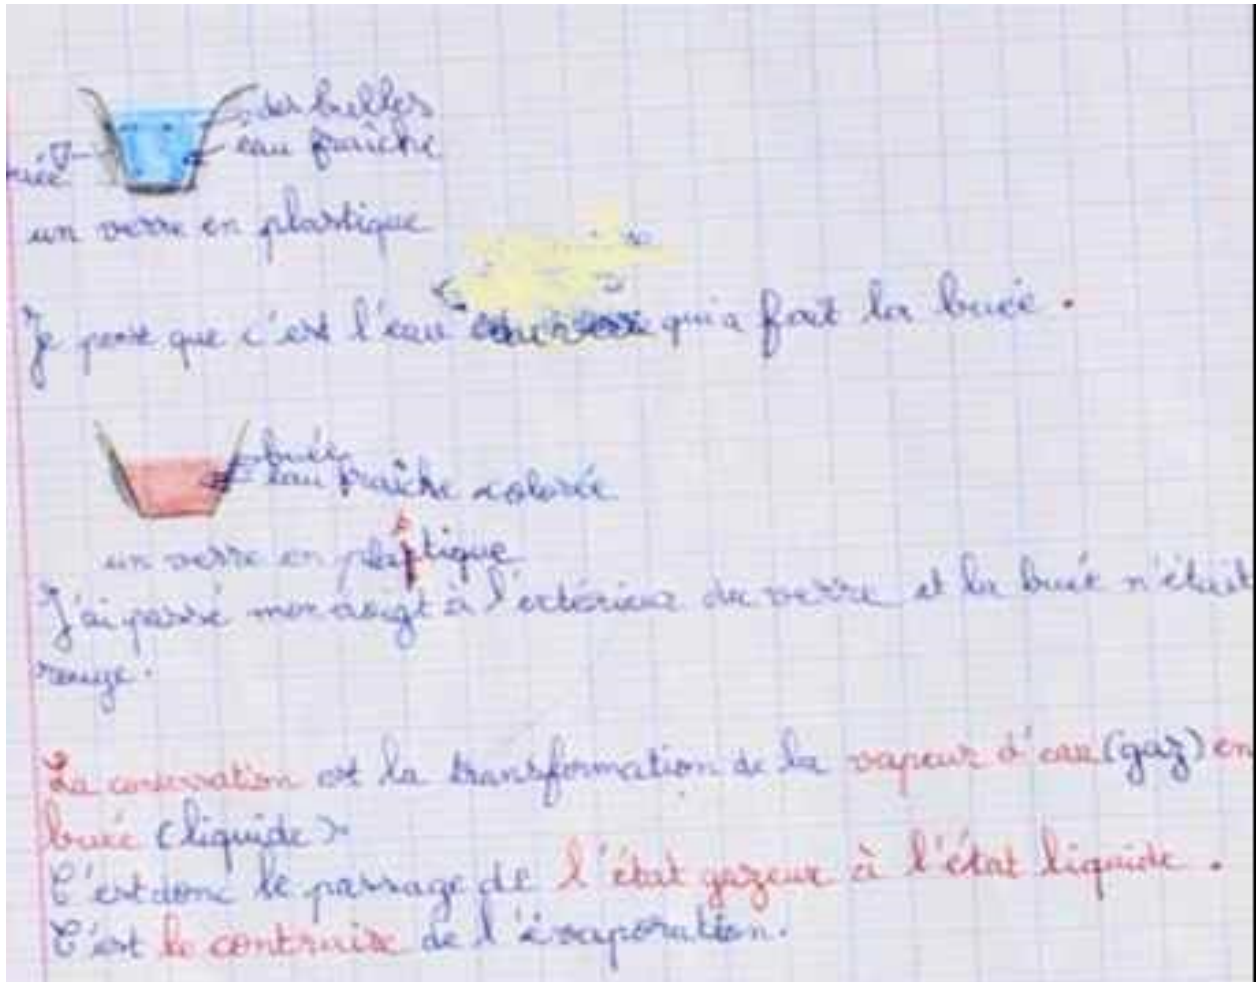 des bulles
eau fraîche
buée
un verre en plastique
Je pense que c'est l'eau qui a fait la buée.
buée
eau fraîche colorée
un verre en plastique
J'ai passé mon doigt à l'extérieur du verre et la buée n'était
rouge.
La conservation est la transformation de la vapeur d'eau (gaz) en
buée (liquide).
C'est donc le passage de l'état gazeux à l'état liquide.
C'est le contraire de l'évaporation.